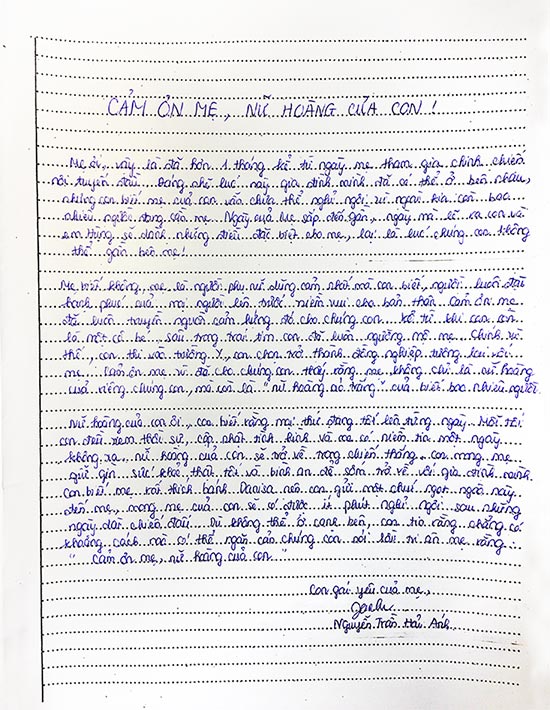 CẢM ƠN MẸ, NỮ HOÀNG CỦA CON!
Mẹ ơi, vậy là đã hơn 1 tháng kể từ ngày mẹ tham gia chinh chiến
nơi tuyến đầu. Đáng nhẽ lúc này gia đình mình đã có thể ở bên nhau,
nhưng con biết mẹ của con vẫn chưa thể nghỉ ngơi vì ngoài kia còn bao
nhiêu người mong cần mẹ. Ngày của mẹ sắp đến gần, ngày mà lẽ ra con và
em Hùng sẽ dành những điều đặc biệt cho mẹ, lại là lúc chúng con không
thể gần bên mẹ!
Mẹ biết không, mẹ là người phụ nữ dũng cảm nhất mà con biết, người luôn đặt
hạnh phúc của mọi người lên trước niềm vui cho bản thân. Cảm ơn mẹ
đã luôn truyền nguồn cảm hứng đó cho chúng con. Kể từ khi con còn
là một cô bé, sâu trong trái tim con đã luôn ngưỡng mộ mẹ. Chính vì
thế, con thi vào trường Y, con chọn trở thành đồng nghiệp tương lai với
mẹ. Cảm ơn mẹ vì đã cho chúng con thấy rằng mẹ không chỉ là nữ hoàng
của riêng chúng con, mà còn là "nữ hoàng áo trắng" của biết bao nhiêu người.
Nữ hoàng của con ơi, con biết rằng mọi thứ đang tốt lên từng ngày. Mỗi tối
con đều xem thời sự, cập nhật tình hình và con có niềm tin một ngày
không xa, nữ hoàng của con sẽ trở về trong chiến thắng. Con mong mẹ
giữ gìn sức khoẻ, thật tốt và bình an để sớm trở về với gia đình mình.
Con biết mẹ rất thích bánh Danisa nên con gửi một chút ngọt ngào này
đến mẹ, mong mẹ của con sẽ có được ít phút nghỉ ngơi sau những
ngày dài chiến đấu. Dù không thể ở cạnh bên, con tin rằng chẳng có
khoảng cách nào có thể ngăn cản chúng con nói lời tri ân mẹ rằng:
"Cảm ơn mẹ, nữ hoàng của con"
Con gái yêu của mẹ,
Nguyễn Trần Hải Anh